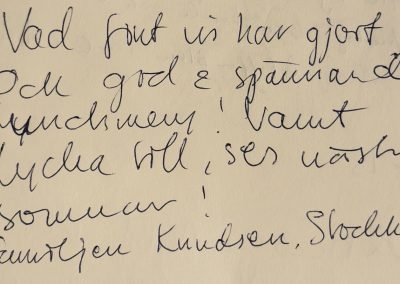 Vad fint ni har gjort
Och god & spännand
lunchmeny! Varmt
lycka till, ses näst
sommar!
Familjen Knudsen, Stockh